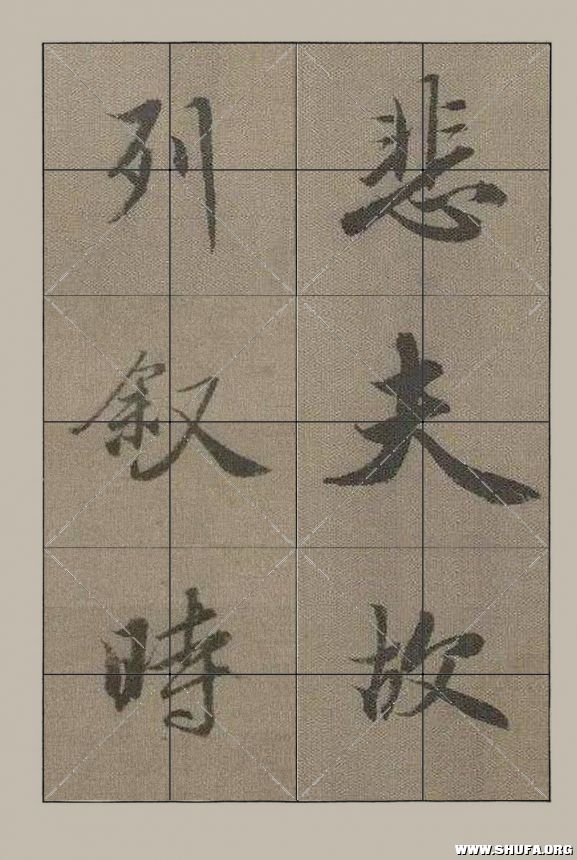 悲夫故
列叙時
WWW.SHUFA.ORG